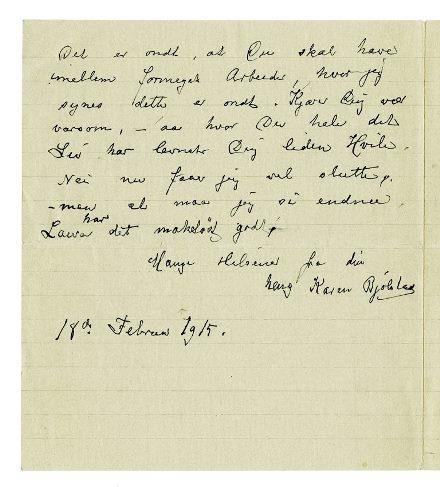 Det er ondt, at Du skal have
imellem formeget Arbeide, hvor jeg
synes dette er ondt. Kjære Dig vær
varsom, – aa hvor Du hele dit
Liv har levnet Dig liden Hvile.
Nei nu faar jeg vel slutte,
– men et maa jeg si endnu.
Laura har det makeløst godt,
Mange Hilsener fra din
heng Karen Bjølstad
18de Februar 1915.